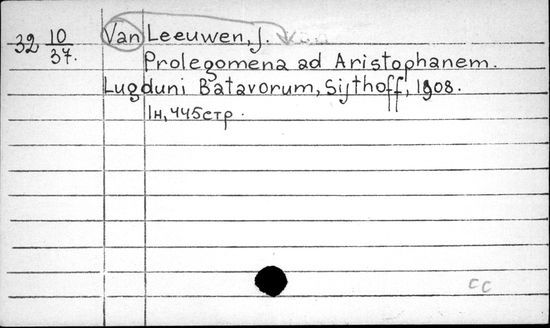 32 10/37. Van Leeuwen, J.
Prolegomena ad Aristophanem.
Lugduni Batavorum, Sijthoff, 1908.
1н, 445стр.
cc